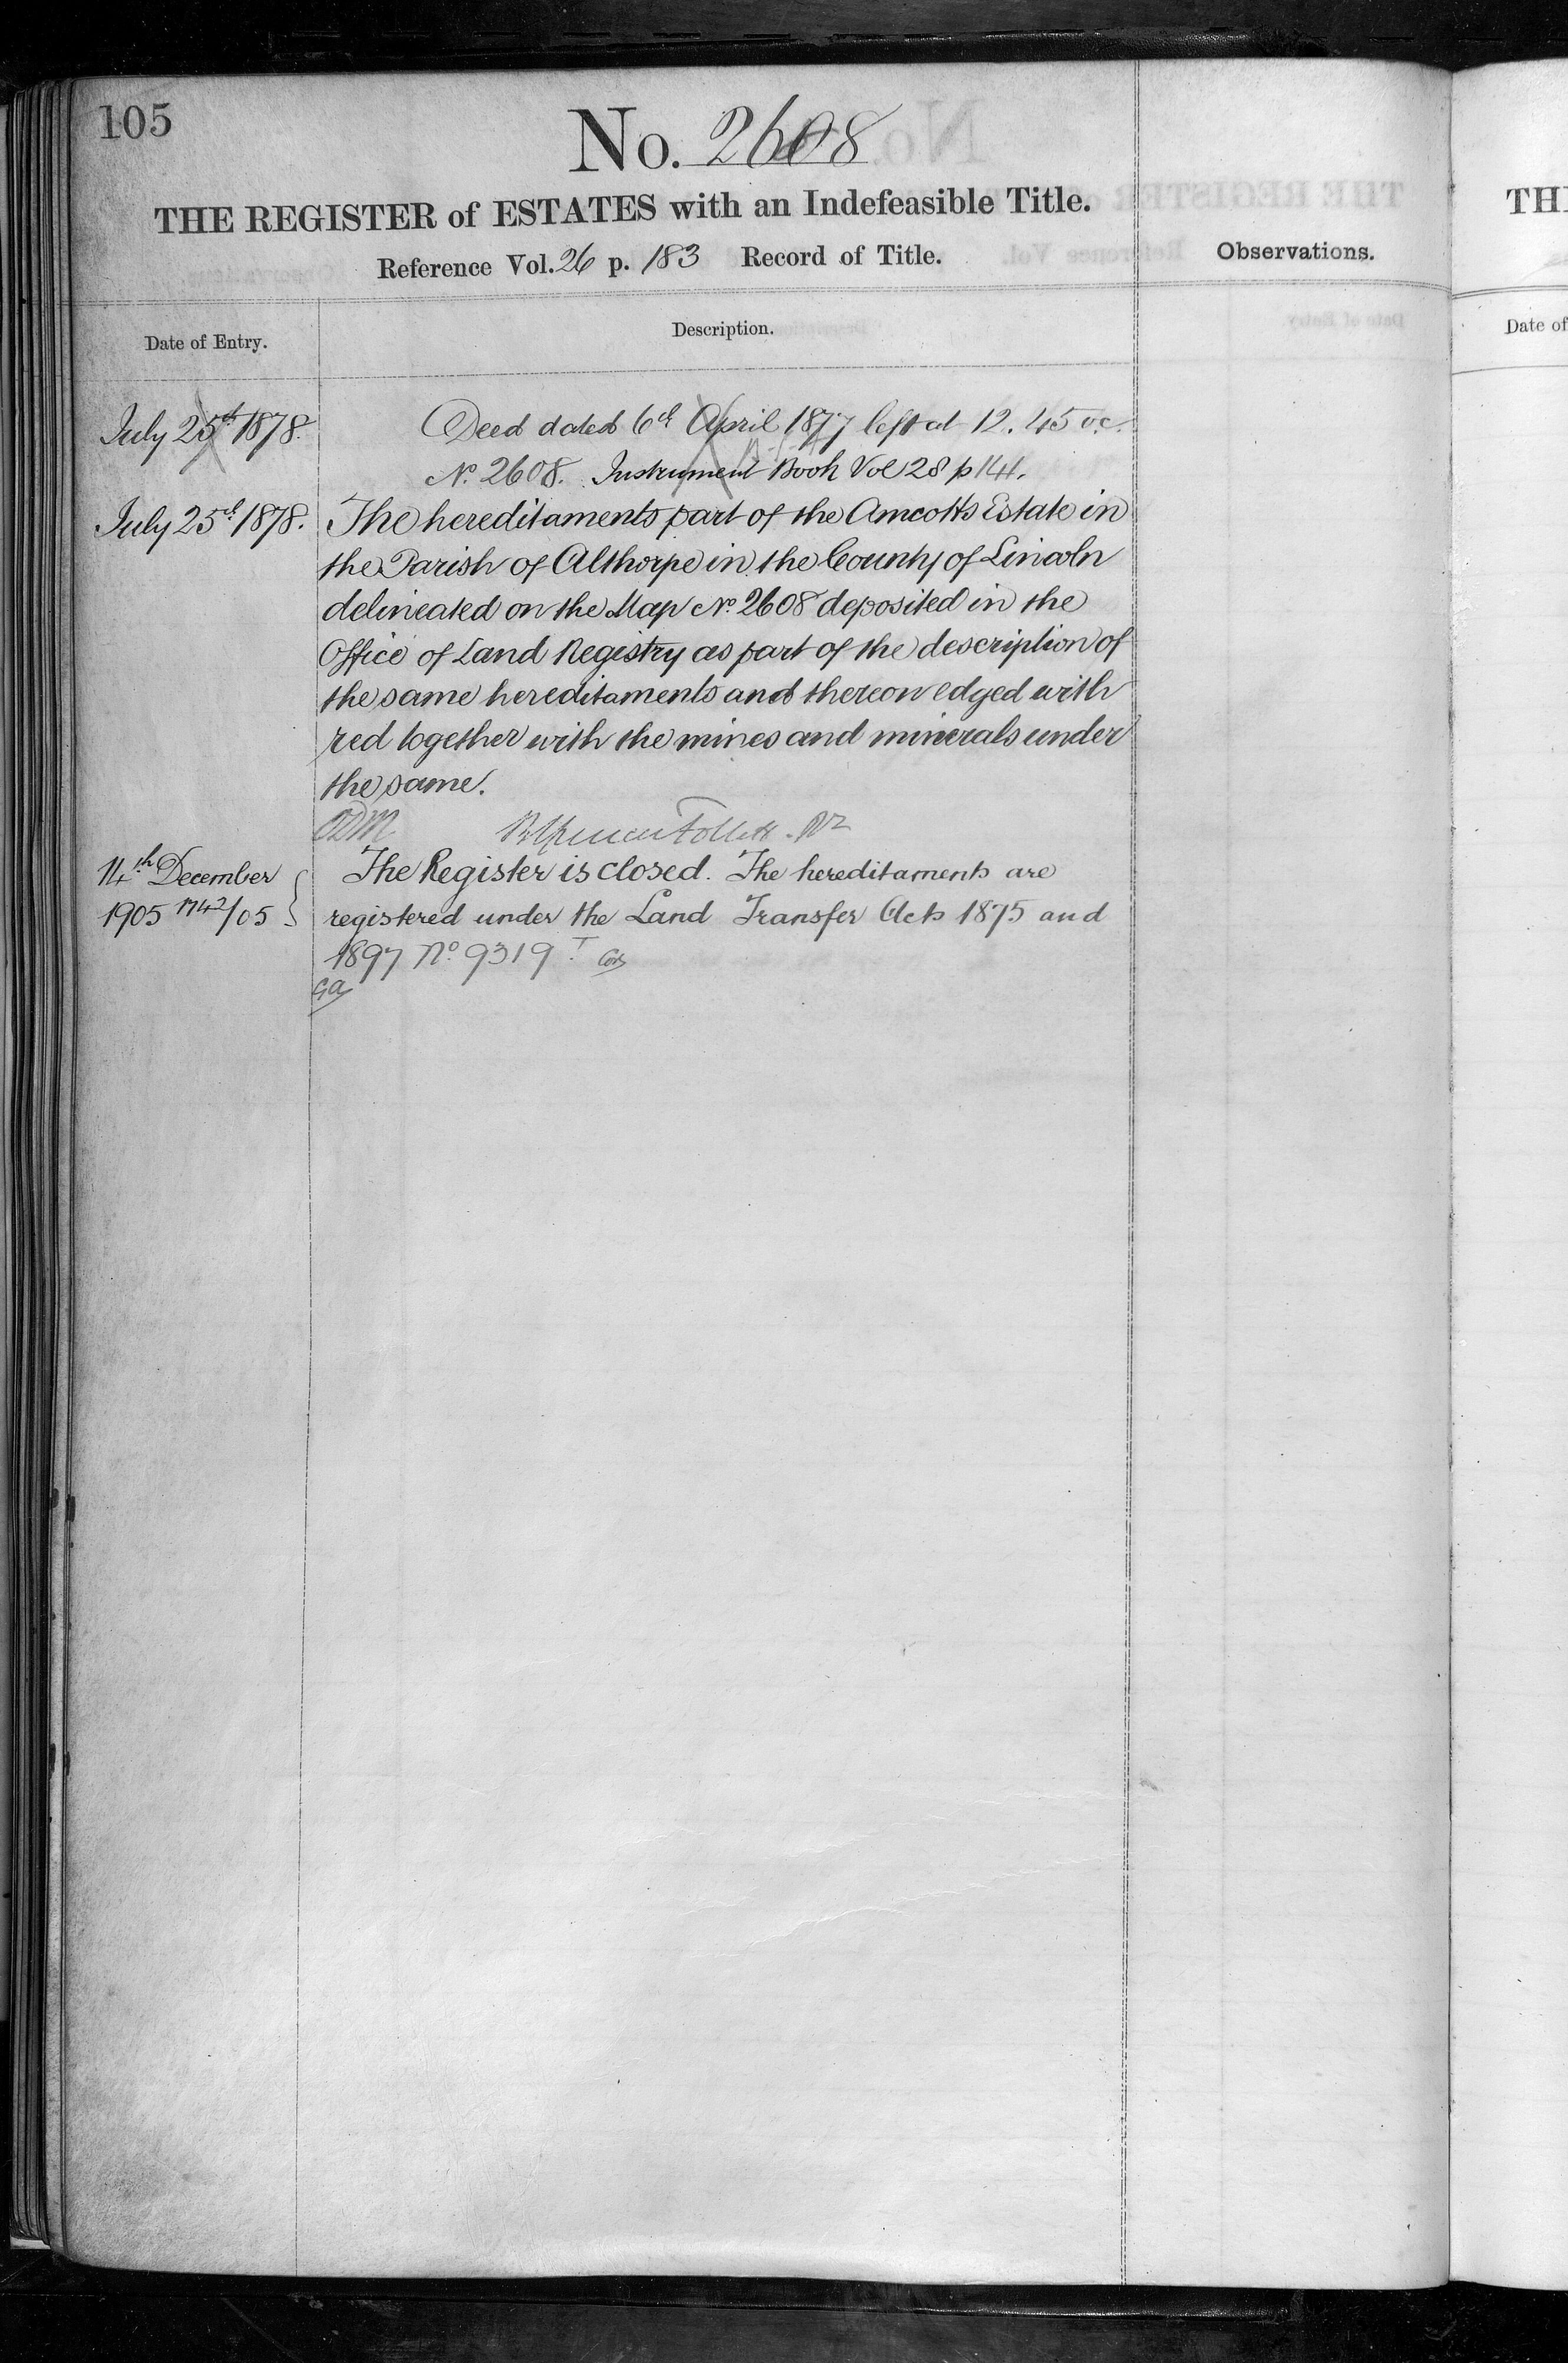 105
No. 2608
THE REGISTER of ESTATES with an Indefeasible Title.
Reference Vol. 26 p. 183 Record of Title.
Observations.
Date of Entry.
Description.
July 25th 1878.
Deed dated 6th April 1877 left at 12.45 o.c.
No. 2608. Instrument Book Vol 28 p 141.
July 25th 1878.
The hereditaments part of the Amcotts Estate in
the Parish of Althorpe in the County of Lincoln
delineated on the Map No. 2608 deposited in the
Office of Land Registry as part of the description of
the same hereditaments and thereon edged with
red together with the mines and minerals under
the same.
Follett
14th December
1905 1742/05
The Register is closed. The hereditaments are
registered under the Land Transfer Acts 1875 and
1897 No. 9319
GA
TH
Date of